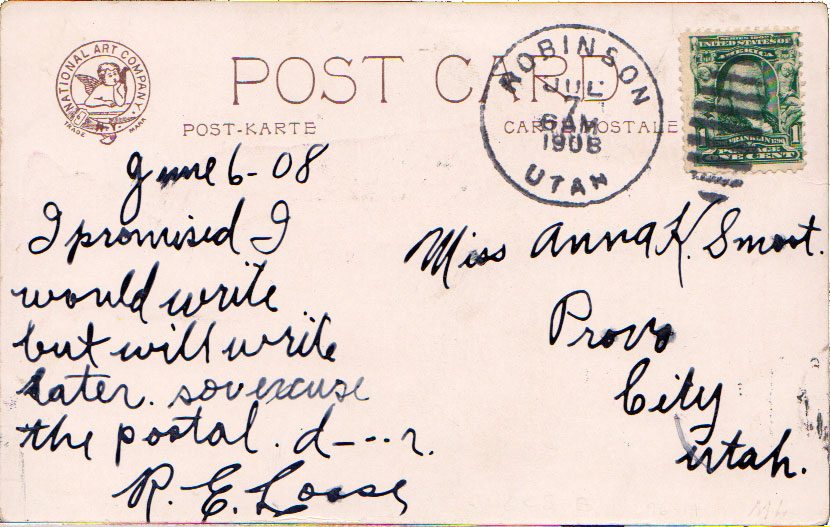 NATIONAL ART COMPANY
N.Y.
TRADE MARK
POST CARD
POST-KARTE
CARTE POSTALE
ROBINSON
JUL
7
6 AM
1908
UTAH
SERIES 1902
UNITED STATES OF
AMERICA
FRANKLIN
1
POSTAGE
ONE CENT
June 6-08
I promised I
would write
but will write
later. so excuse
the postal. d---r.
R. E. Loose
Miss Anna K. Smoot.
Provo
City
Utah.